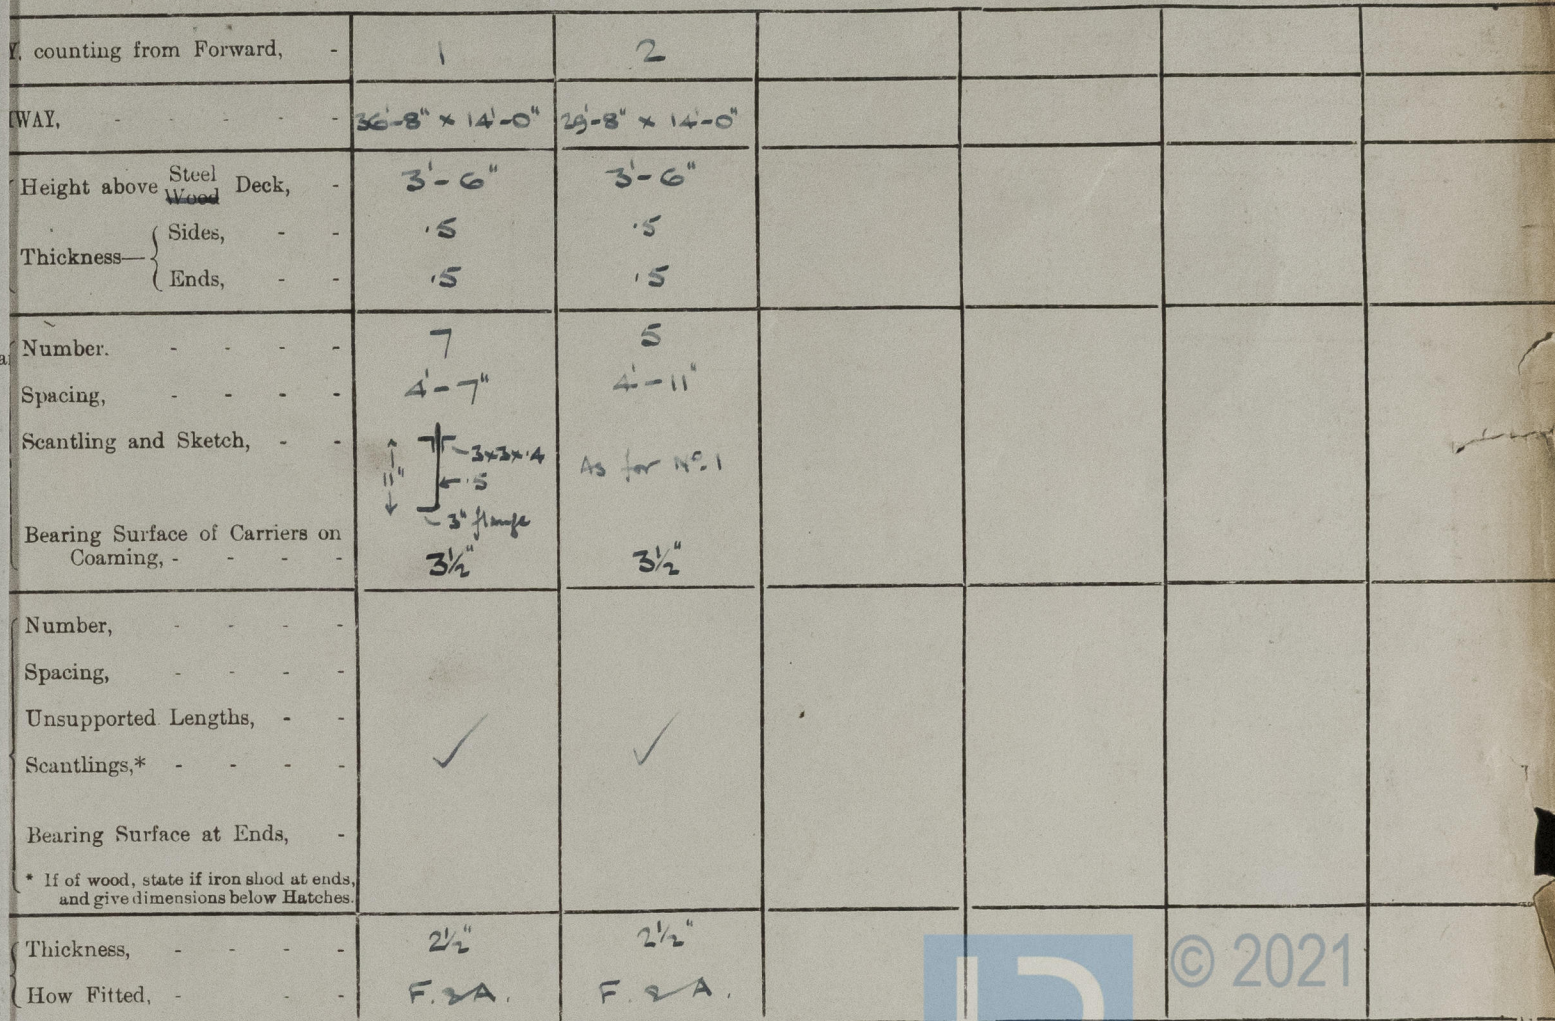 Y, counting from Forward, - 1 2
WAY, - - - - - 36'-8" × 14'-0" 29'-8" × 14'-0"
Height above Steel Wood Deck, - 3'-6" 3'-6"
Thickness— Sides, - - .5 .5
Ends, - - .5 .5
Number. - - - - 7 5
Spacing, - - - - 4'-7" 4'-11"
Scantling and Sketch, - - 11" 3×3×.4 As for No. 1
.5
3" flange
Bearing Surface of Carriers on
Coaming, - - - - 3½" 3½"
Number, - - - -
Spacing, - - - -
Unsupported Lengths, - -
Scantlings,* - - - - ✓ ✓
Bearing Surface at Ends, -
* If of wood, state if iron shod at ends,
and give dimensions below Hatches.
Thickness, - - - - 2½" 2½"
How Fitted, - - - F. & A. F. & A.
© 2021